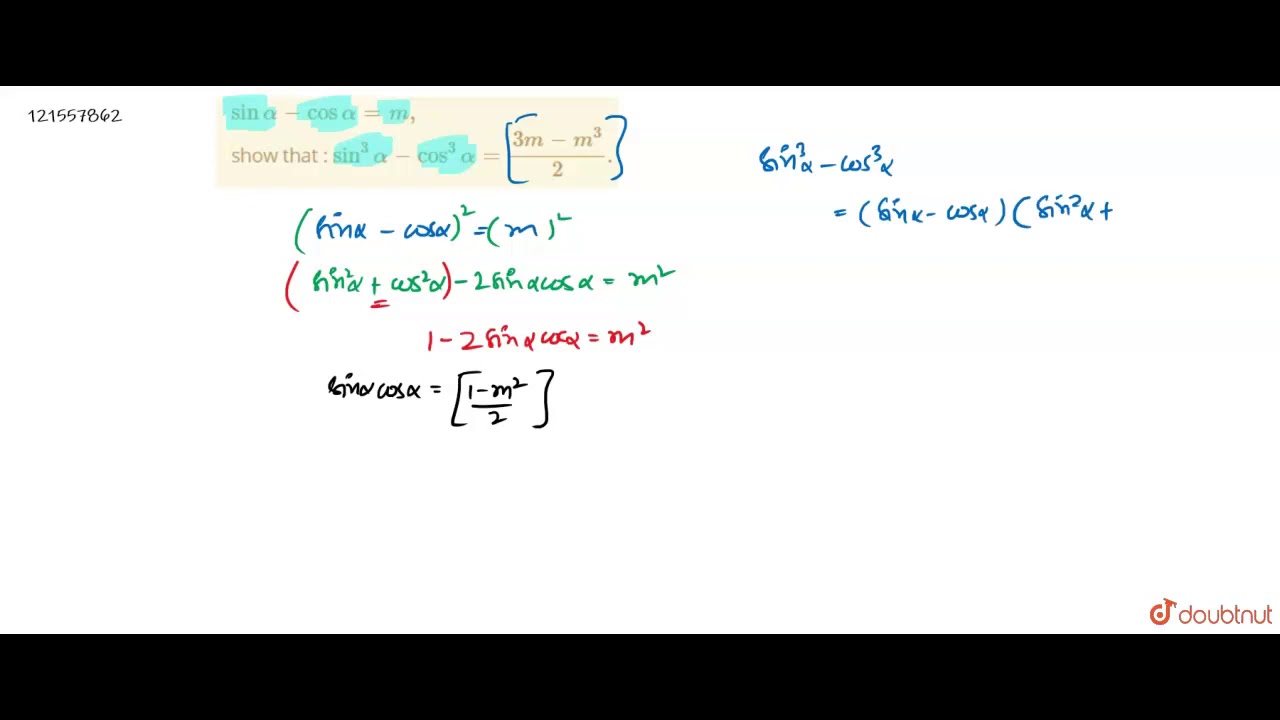 121557862
sin α − cos α = m,
show that : sin³ α − cos³ α = [(3m − m³)/2.]
(sinα − cosα)² = (m)²
(sin²α + cos²α) − 2sinαcosα = m²
1 − 2sinαcosα = m²
sinαcosα = [(1−m²)/2]
sin³α − cos³α
= (sinα − cosα)(sin²α +
doubtnut